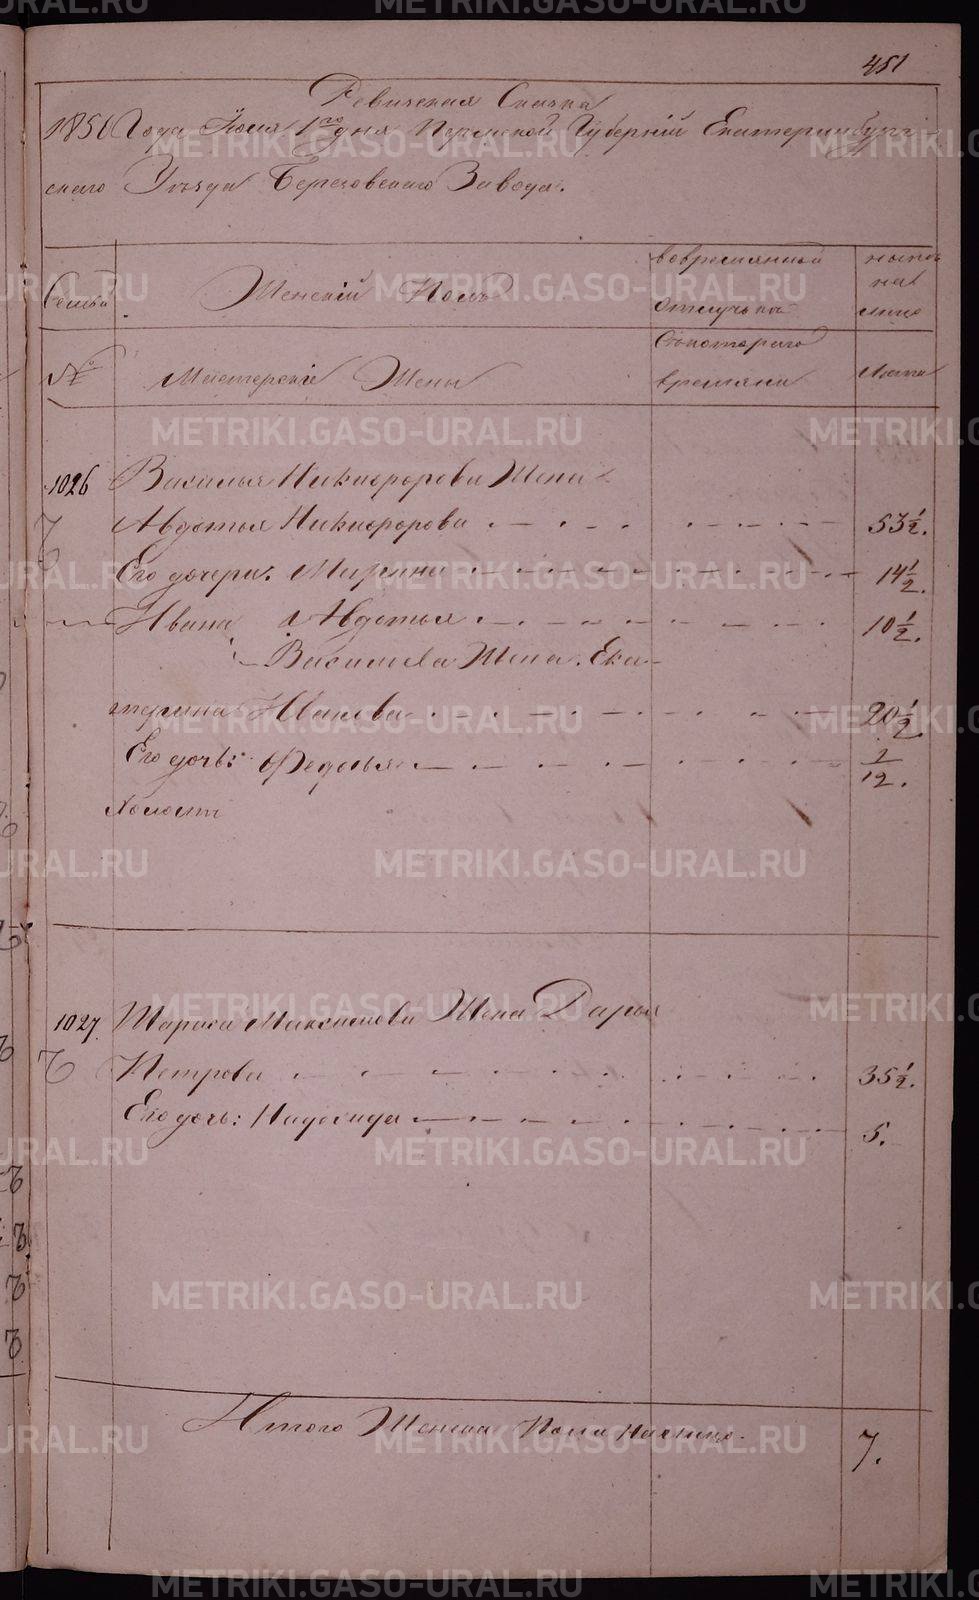 451
Ревизская Сказка
1850 Года Июля 1го дня Пермской Губернiи Екатеринбург-
скаго Уезда Березовскаго Завода.
Семьи
Женскiй Полъ
вовременной
отлучке
ныне
на
лицо
№
Мастерскiе Жены
Съкотораго
времяни
Лета
1026 Василья Никифорова Жена
Авдотья Никифорова 53 1/2.
Его дочери: Марина 14 1/2.
Ивана Авдотья 10 1/2.
Василиева Жена. Ека-
терина Иванова 20 1/2
Его дочь: Федосья 7/12.
Холостъ
1027 Тараса Максимова Жена Дарья
Петрова 35 1/2.
Его дочь: Надежда 5.
Итого Женска Пола налицо. 7.
METRIKI.GASO-URAL.RU